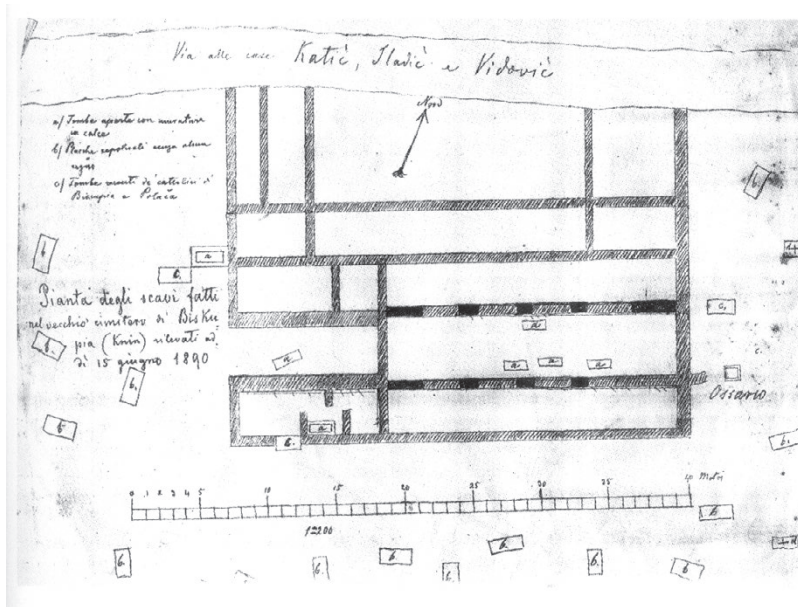 Via alle case Katić, Sladić e Vidović
Nord
a/ Tombe aperte con murature
in calce
b/ Placche sepolcrali senza alcun
segno
c/ Tombe recenti de' cattolici di
Biskupia e Polača
4
a
b.
c,
Pianta degli scavi fatti
nel vecchio cimitero di Bisku
pia (Knin) rilevati ad.
dì 15 giugno 1890
a
a
a
a
a
f.
b.
b.
b
a
Ossario
b.
0 1 2 3 4 5 10 15 20 25 30 35 40 Metri
1=200
b
b.
b.
b
b.
b.
b.
b